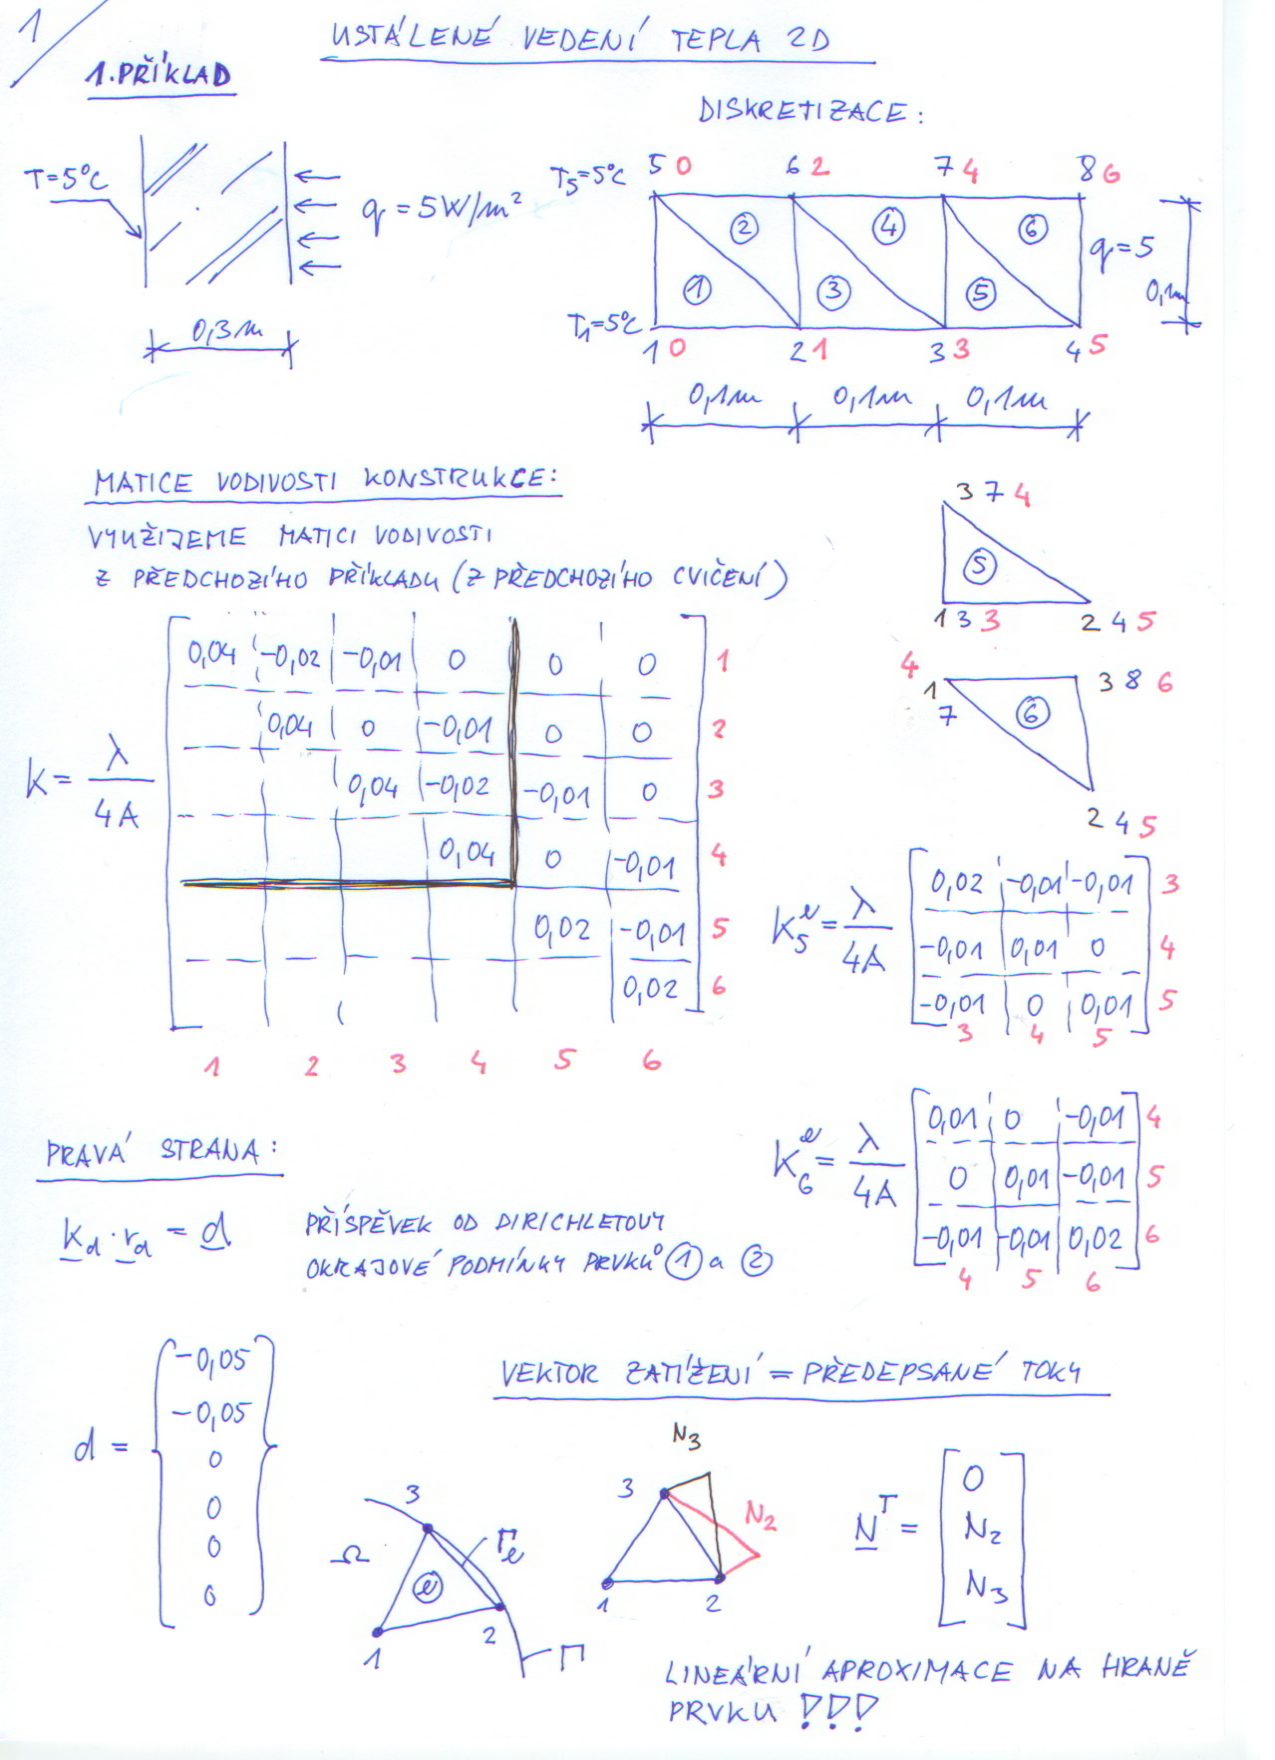 1
USTÁLENÉ VEDENÍ TEPLA 2D
1. PŘÍKLAD
DISKRETIZACE:
T=5°C
q = 5W/m²
0,3m
T₅=5°C
5 0
6 2
7 4
8 6
② ④ ⑥
① ③ ⑤
q=5
0,1m
T₁=5°C
1 0
2 1
3 3
4 5
0,1m 0,1m 0,1m
MATICE VODIVOSTI KONSTRUKCE:
VYUŽIJEME MATICI VODIVOSTI
Z PŘEDCHOZÍHO PŘÍKLADU (Z PŘEDCHOZÍHO CVIČENÍ)
3 7 4
⑤
1 3 3
2 4 5
4
1
7
3 8 6
⑥
2 4 5
K = λ/4A
0,04 -0,02 -0,01 0 0 0 1
0,04 0 -0,01 0 0 2
0,04 -0,02 -0,01 0 3
0,04 0 -0,01 4
0,02 -0,01 5
0,02 6
1 2 3 4 5 6
K₅ᵉ = λ/4A
0,02 -0,01 -0,01 3
-0,01 0,01 0 4
-0,01 0 0,01 5
3 4 5
K₆ᵉ = λ/4A
0,01 0 -0,01 4
0 0,01 -0,01 5
-0,01 -0,01 0,02 6
4 5 6
PRAVÁ STRANA:
K_d · r_d = d
PŘÍSPĚVEK OD DIRICHLETOVY
OKRAJOVÉ PODMÍNKY PRVKŮ ① a ②
d =
-0,05
-0,05
0
0
0
0
VEKTOR ZATÍŽENÍ = PŘEDEPSANÉ TOKY
Ω
3
Γₑ
ⓔ
1
2
Γ
N₃
3
N₂
1
2
Nᵀ =
0
N₂
N₃
LINEÁRNÍ APROXIMACE NA HRANĚ
PRVKU !!!